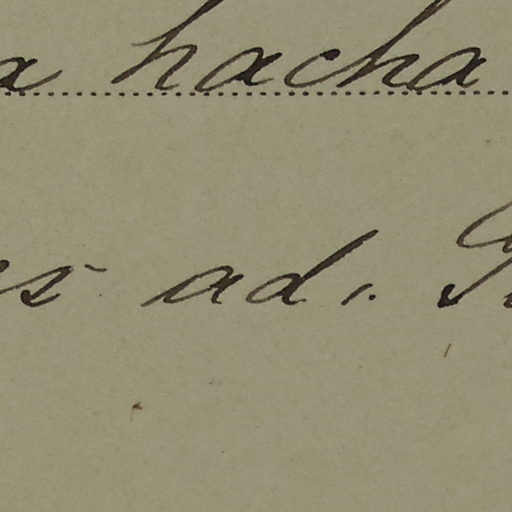 a hacha
s ad.